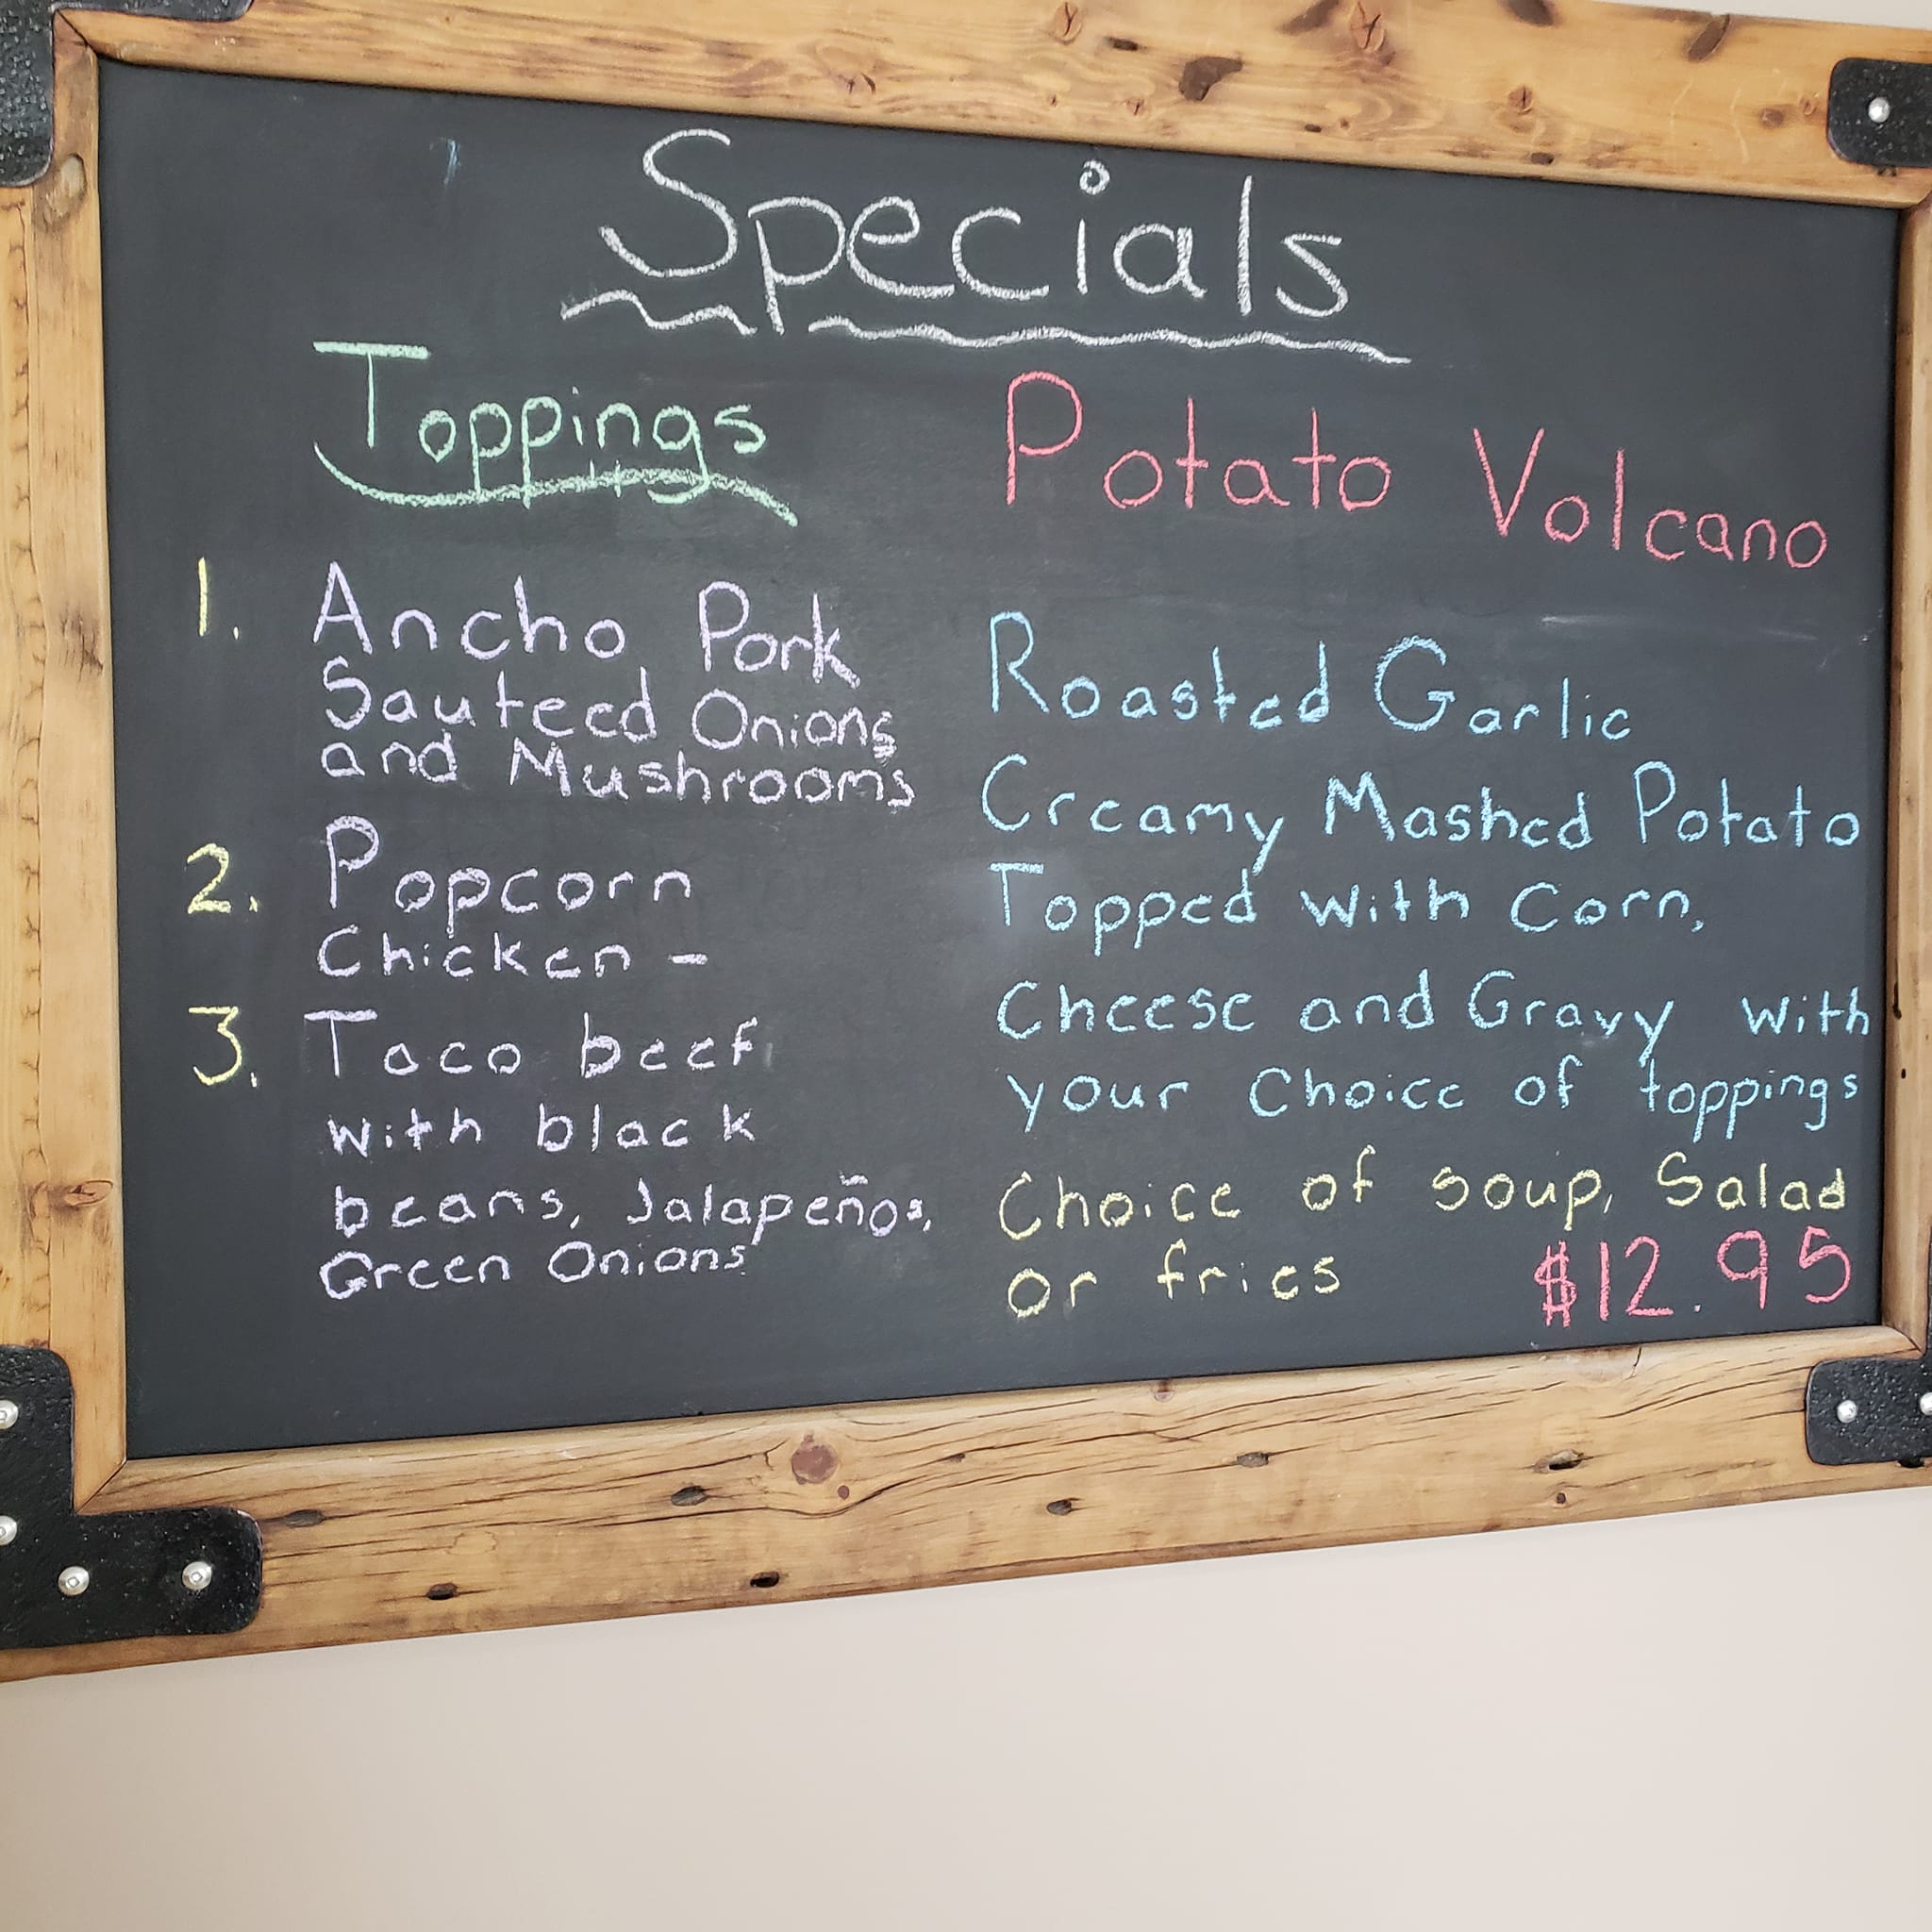 Specials
Toppings
1. Ancho Pork
Sauteed Onions
and Mushrooms
2. Popcorn
Chicken -
3. Taco beef
with black
beans, Jalapeños,
Green Onions
Potato Volcano
Roasted Garlic
Creamy Mashed Potato
Topped with Corn,
Cheese and Gravy with
your Choice of toppings
Choice of soup, Salad
or fries $12.95